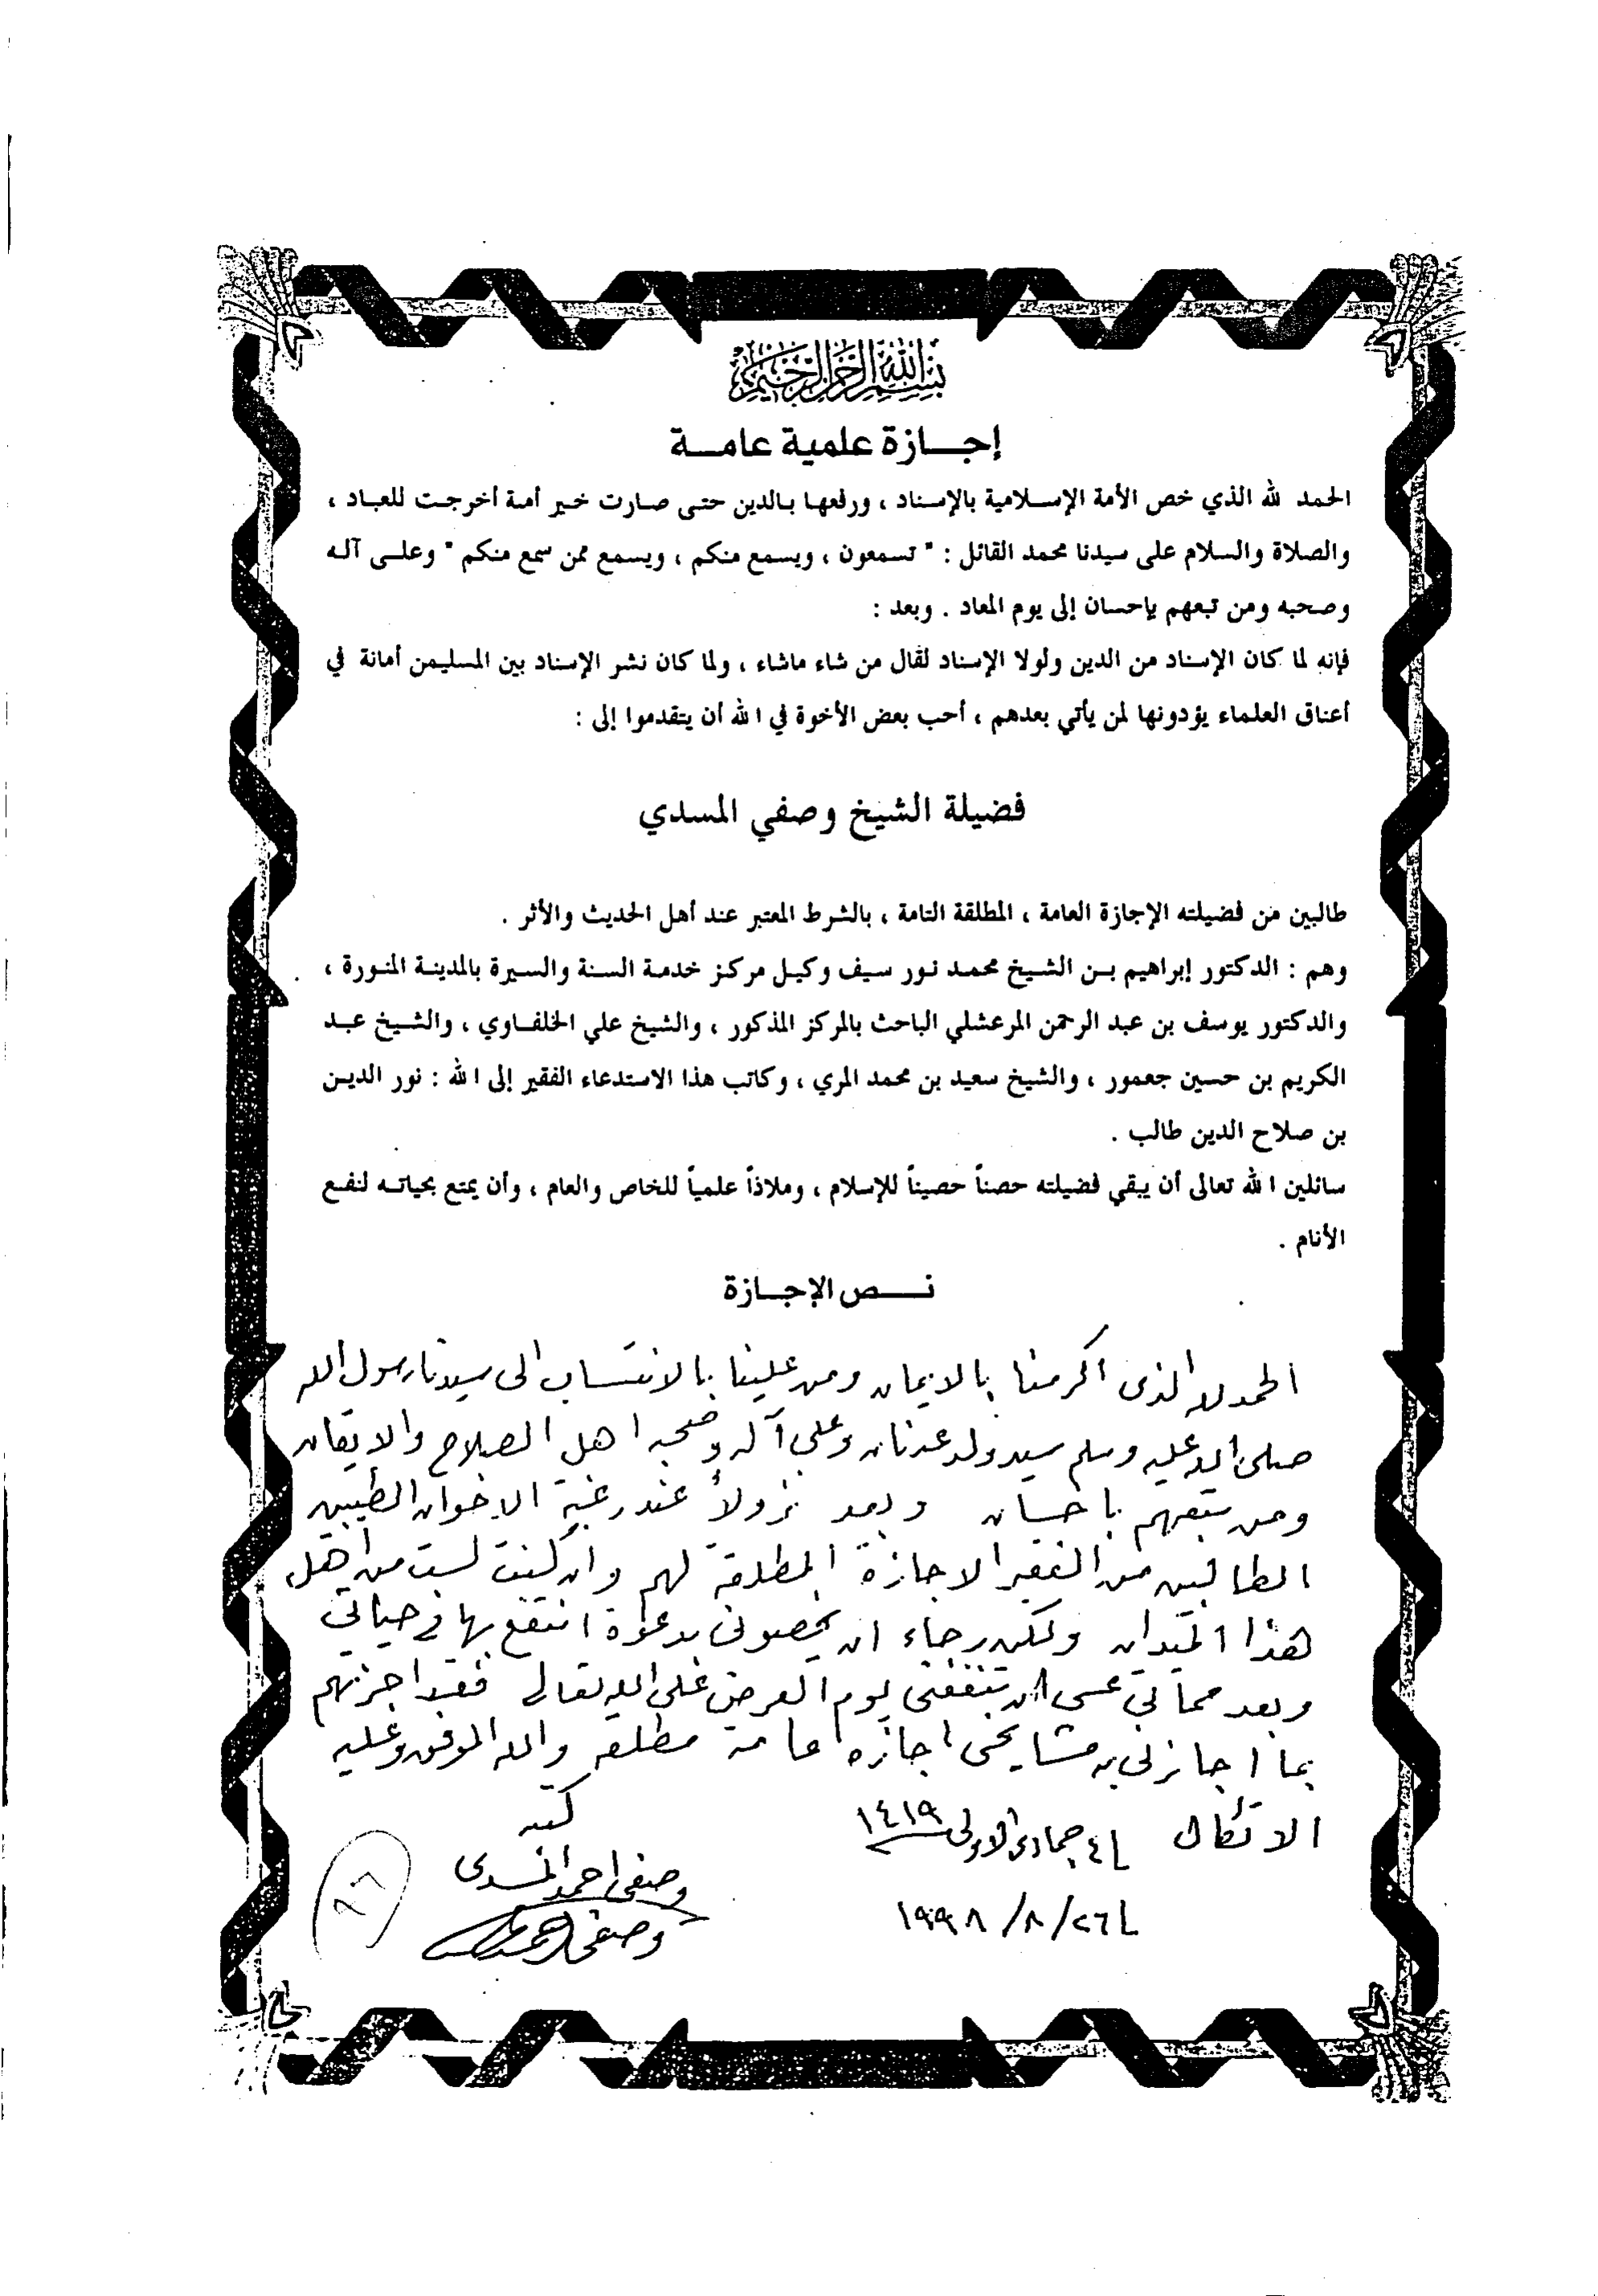 بسم الله الرحمن الرحيم
إجازة علمية عامة
الحمد لله الذي خص الأمة الإسلامية بالإسناد ، ورفعها بالدين حتى صارت خير أمة أخرجت للعباد ،
والصلاة والسلام على سيدنا محمد القائل : " تسمعون ، ويسمع منكم ، ويسمع ممن سمع منكم " وعلى آله
وصحبه ومن تبعهم بإحسان إلى يوم المعاد . وبعد :
فإنه لما كان الإسناد من الدين ولولا الإسناد لقال من شاء ماشاء ، ولما كان نشر الإسناد بين المسليمن أمانة في
أعناق العلماء يؤدونها لمن يأتي بعدهم ، أحب بعض الأخوة في الله أن يتقدموا إلى :
فضيلة الشيخ وصفي المسدي
طالبين من فضيلته الإجازة العامة ، المطلقة التامة ، بالشرط المعتبر عند أهل الحديث والأثر .
وهم : الدكتور إبراهيم بن الشيخ محمد نور سيف وكيل مركز خدمة السنة والسيرة بالمدينة المنورة ،
والدكتور يوسف بن عبد الرحمن المرعشلي الباحث بالمركز المذكور ، والشيخ علي الخلفاوي ، والشيخ عبد
الكريم بن حسين جعمور ، والشيخ سعيد بن محمد المري ، وكاتب هذا الاستدعاء الفقير إلى الله : نور الدين
بن صلاح الدين طالب .
سائلين الله تعالى أن يبقي فضيلته حصناً حصيناً للإسلام ، وملاذاً علمياً للخاص والعام ، وأن يمتع بحياته لنفع
الأنام .
نص الإجازة
الحمد لله الذى اكرمنا بالايمان ومن علينا بالانتساب الى سيدنا رسول الله
صلى الله عليه وسلم سيد ولد عدنان وعلى آله وصحبه اهل الصلاح والايقان
ومن تبعهم باحسان وبعد نزولاً عند رغبة الاخوان الطيبين
الطالبين من الفقير الاجازة المطلقة لهم وان كنت لست من اهل
هذا الميدان ولكن رجاء ان يخصونى بدعوة انتفع بها في حياتي
وبعد مماتي عسى ان تنفعنى يوم العرض على الله تعالى فقد اجزتهم
بما اجازنى به مشايخى اجازة عامة مطلقة والله الموفق وعليه
الاتكال
٤ جمادى الاولى ١٤١٩
٢٦/٨/١٩٩٨
كتبه
وصفى احمد المسدى
وصفى احمد المسدى